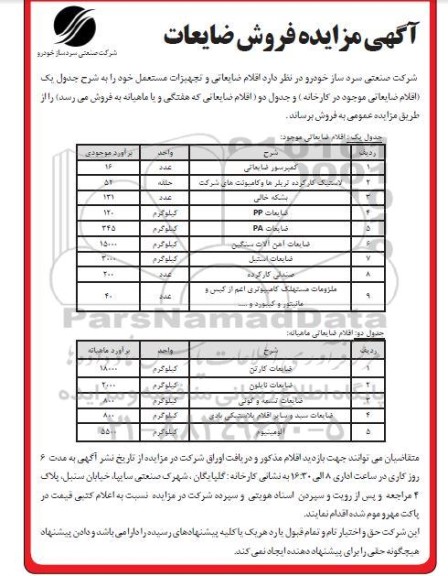 شرکت صنعتی سردساز خودرو
آگهی مزایده فروش ضایعات
شرکت صنعتی سرد ساز خودرو در نظر دارد اقلام ضایعاتی و تجهیزات مستعمل خود را به شرح جدول یک
(اقلام ضایعاتی موجود در کارخانه ) و جدول دو ( اقلام ضایعاتی که هفتگی و یا ماهیانه به فروش می رسد) را از
طریق مزایده عمومی به فروش برساند.
جدول یک : اقلام ضایعاتی موجود:
ردیف شرح واحد برآورد موجودی
۱ کمپرسور ضایعاتی عدد ۱۶
۲ لاستیک کارکرده تریلر ها وکامیونت های شرکت حلقه ۵۴
۳ بشکه خالی عدد ۱۳۱
۴ ضایعات PP کیلوگرم ۱۲۰
۵ ضایعات PA کیلوگرم ۳۴۵
۶ ضایعات آهن آلات سنگین کیلوگرم ۱۵۰۰۰
۷ ضایعات استیل کیلوگرم ۳۰۰۰
۸ صندلی کارکرده عدد ۲۰۰
۹ ملزومات مستهلک کامپیوتری اعم از کیس و
مانیتور و کیبورد و .... عدد ۴۰
ParsNamadData
جدول دو: اقلام ضایعاتی ماهیانه:
ردیف شرح واحد برآورد ماهیانه
۱ ضایعات کارتن کیلوگرم ۱۸۰۰۰
۲ ضایعات نایلون کیلوگرم ۲۰۰۰
۳ ضایعات تسمه و گونی کیلوگرم ۸۰۰
۴ ضایعات سبد و سایر اقلام پلاستیکی بادی کیلوگرم ۸۰۰
۵ آلومینیوم کیلوگرم ۵۵۰۰
متقاضیان می توانند جهت بازدید اقلام مذکور و دریافت اوراق شرکت در مزایده از تاریخ نشر آگهی به مدت ۶
روز کاری در ساعت اداری ۸ الی ۱۶:۳۰ به نشانی کارخانه : گلپایگان ، شهرک صنعتی سایپا، خیابان سنبل، پلاک
۴ مراجعه و پس از رویت و سپردن اسناد هویتی و سپرده شرکت در مزایده نسبت به اعلام کتبی قیمت در
پاکت مهر و موم شده اقدام نمایند.
این شرکت حق و اختیار تام و تمام قبول یا رد هر یک یا کلیه پیشنهادهای رسیده را دارا می باشد و دادن پیشنهاد
هیچگونه حقی را برای پیشنهاد دهنده ایجاد نمی کند.